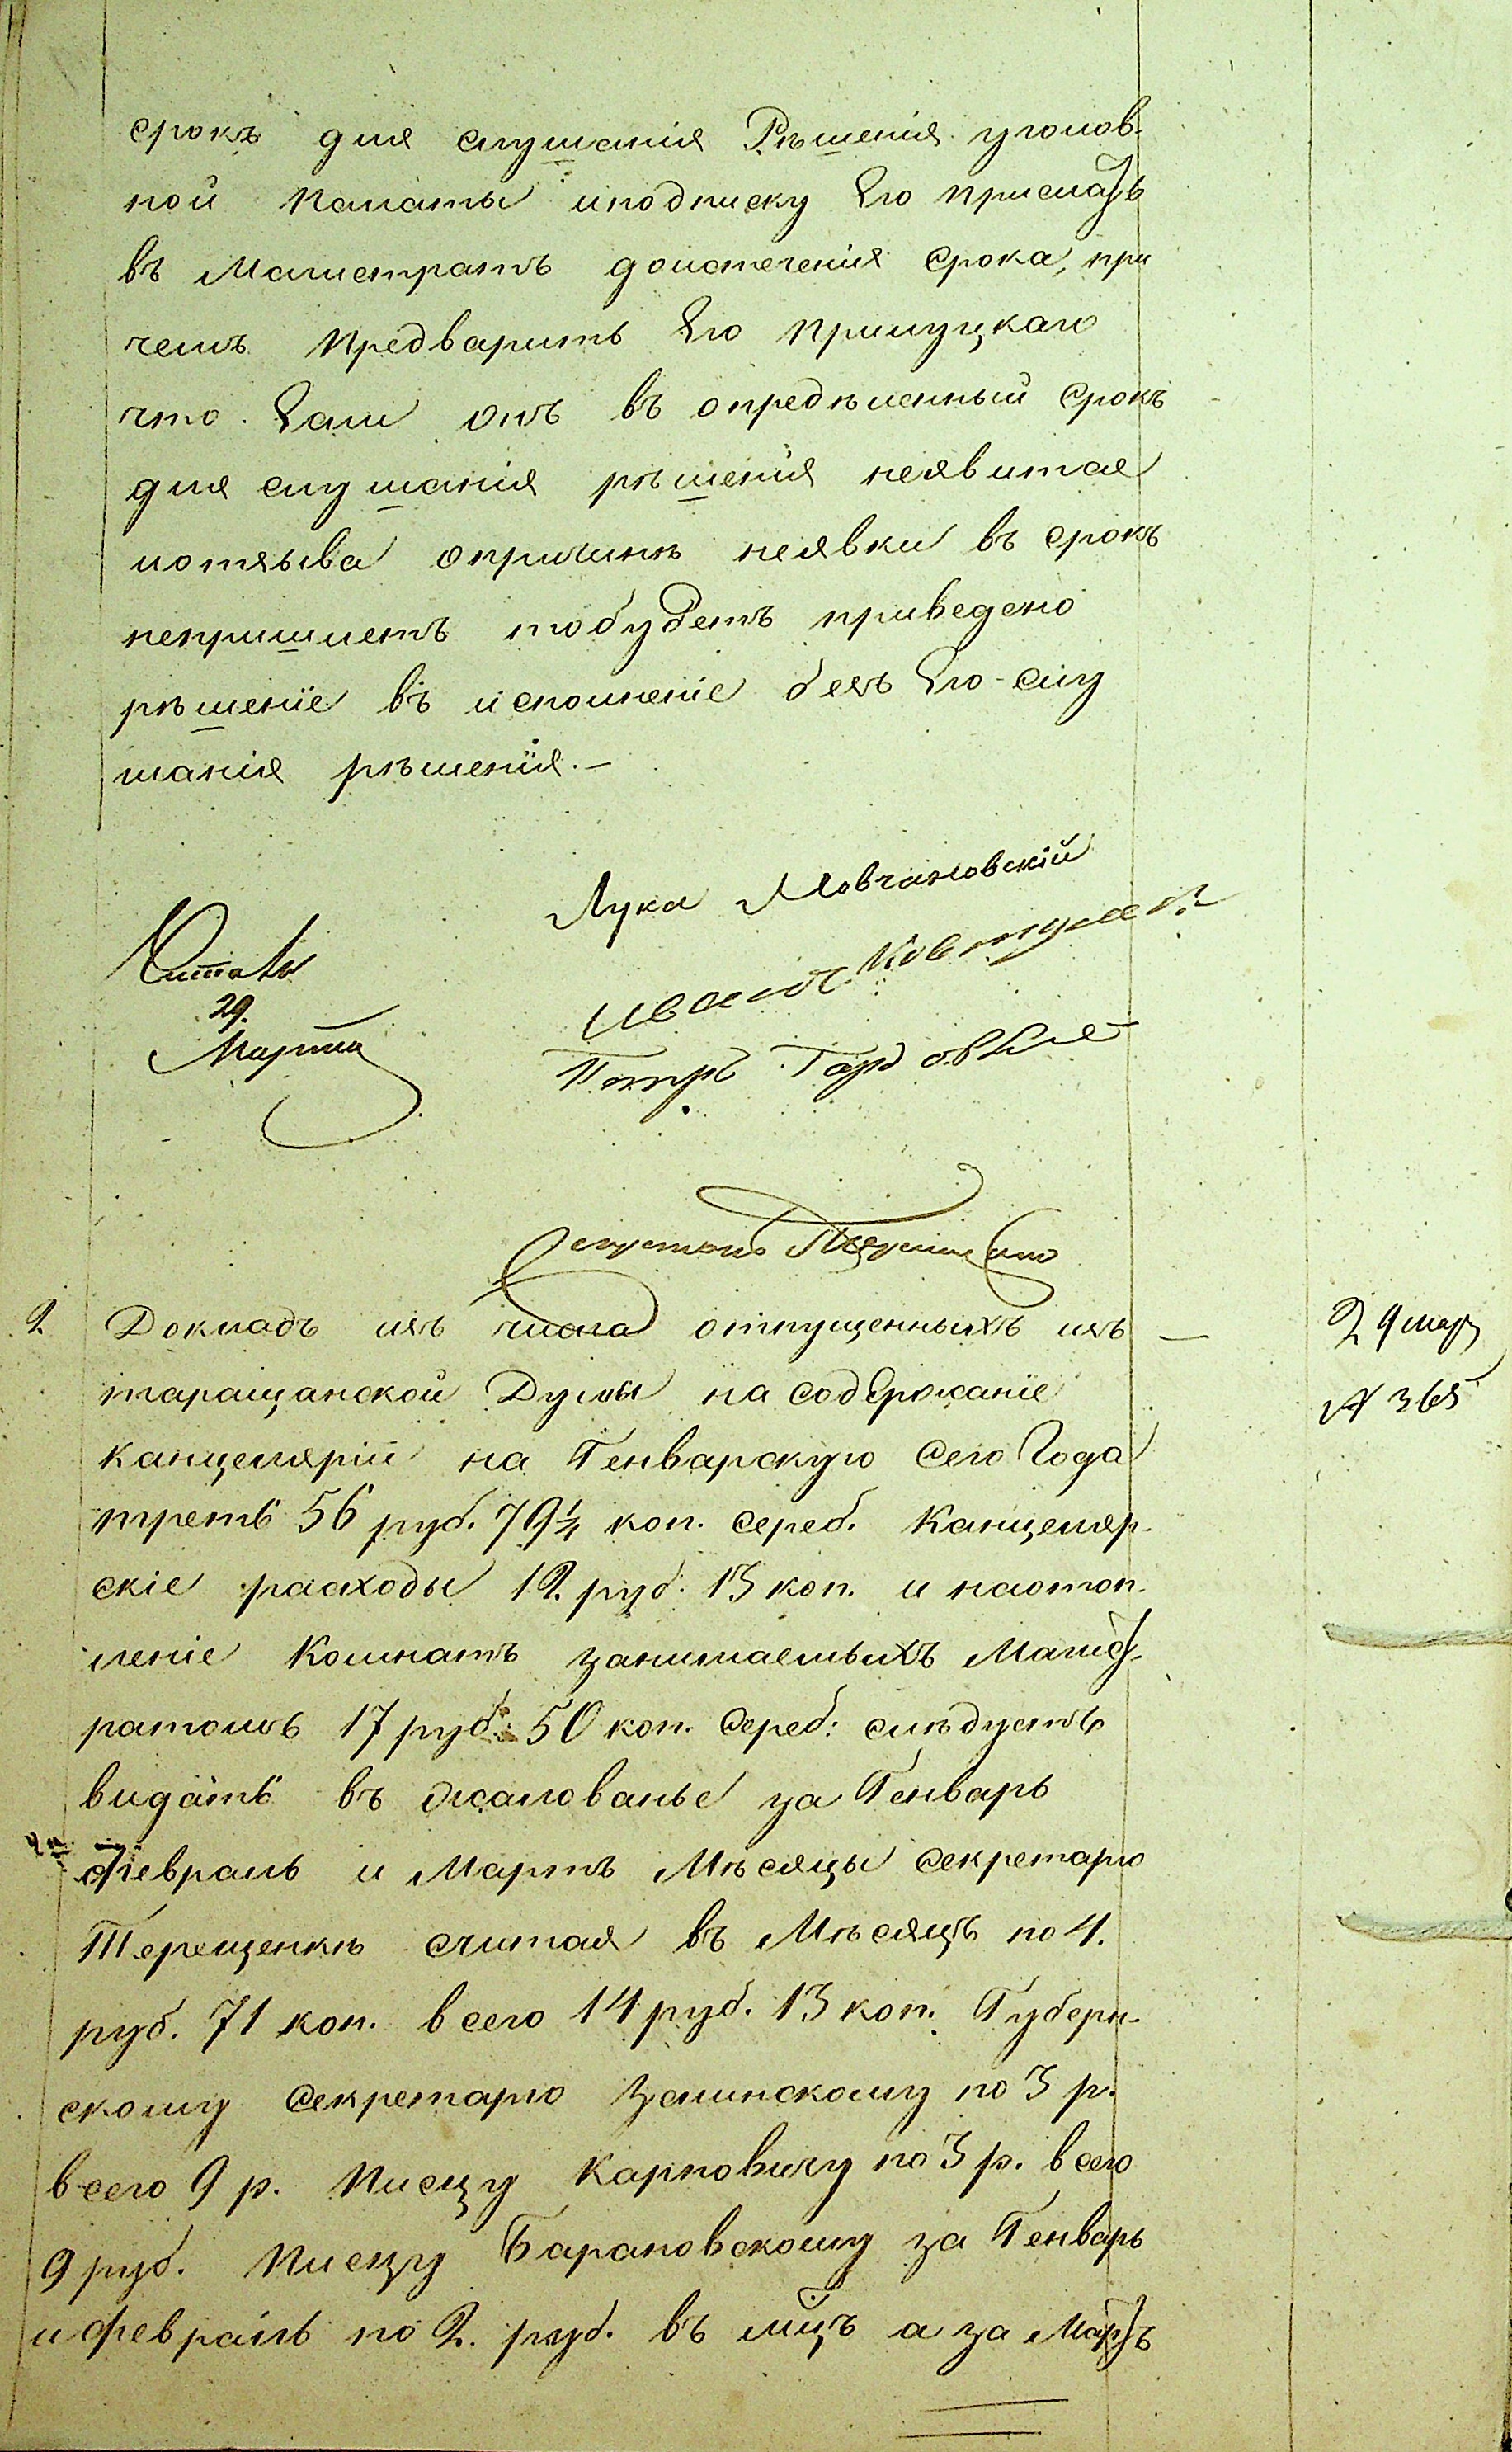 срокъ для слушанія Рѣшенія уголов-
ной Палаты иподписку Его прислать
въ Магистратъ доистеченія срока, при
чемъ предварить Его Прилуцкаго
что Если онъ въ опредѣленный срокъ
для слушанія рѣшенія неявится
иотзыва опричинѣ неявки въ срокъ
непришлетъ тобудетъ приведено
рѣшеніе въ исполненіе безъ Его слу
шанія рѣшенія.—
Лука Мовчановскій
Читалъ
29.
Марта
Иванъ
Петръ
2. Докладъ изъ числа отпущенныхъ изъ —
29 мар
№ 365
таращанской Думы на содержаніе
канцеляріи на Генварскую сего Года
треть 56 руб. 79¼ коп. сереб. Канцеляр-
скіе расходы 12 руб. 13 коп. и наотоп-
леніе Комнатъ занимаемыхъ Магист-
ратомъ 17 руб. 50 коп. сереб: слѣдуетъ
видать въ жалованье за Генварь
февраль и Мартъ Мѣсяцы секретарю
Терещенкѣ считая въ Мѣсяцъ по 4.
руб. 71 коп. всего 14 руб. 13 коп. Губерн-
скому секретарю Зелинскому по 3 р.
всего 9 р. писцу Карповичу по 3 р. всего
9 руб. писцу Барановскому за Генварь
и февраль по 2. руб. въ мцъ а за Мартъ